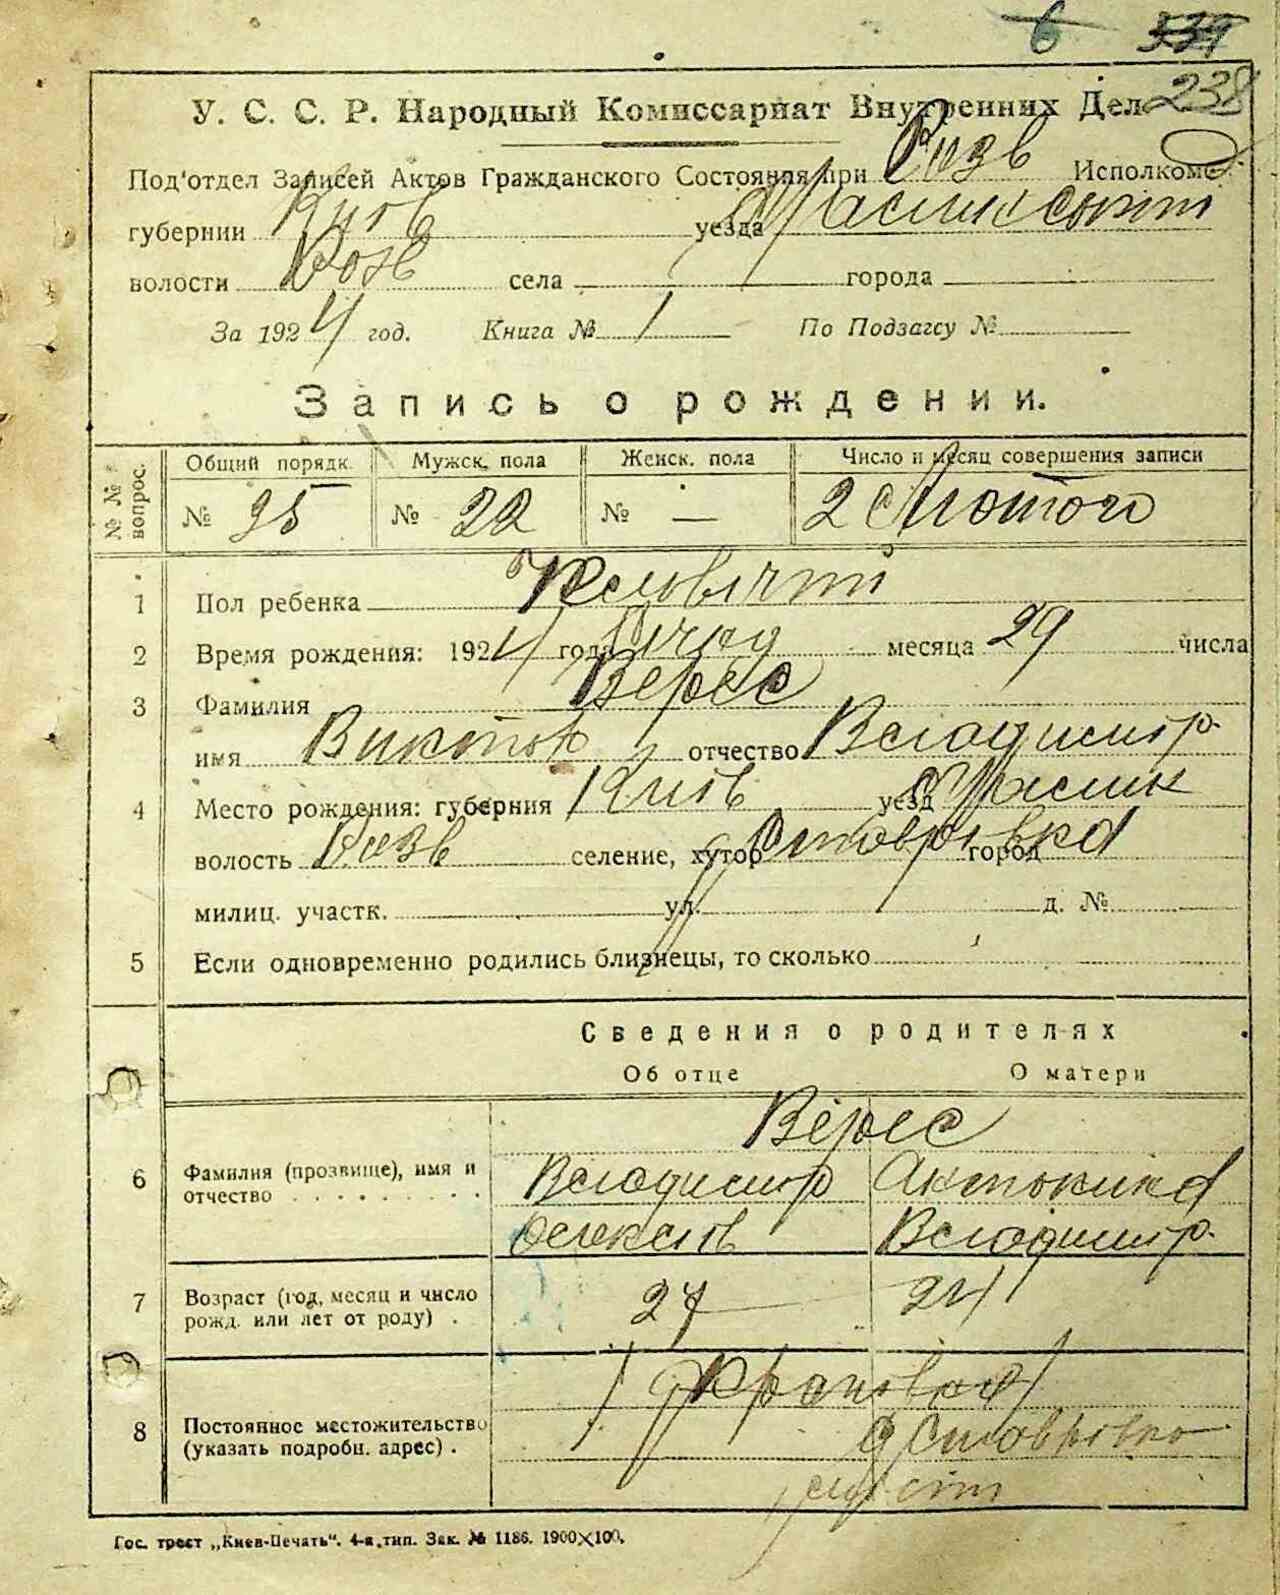 6 339
238
У. С. С. Р. Народный Комиссариат Внутренних Дел
Под'отдел Записей Актов Гражданского Состояния при Розв Исполкоме
губернии Київ уезда
волости Розв села города
За 1924 год. Книга № 1 По Подзагсу №
Запись о рождении.
№ № вопрос. Общий порядк. Мужск. пола Женск. пола Число и месяц совершения записи
№ 25 № 22 № — 2 Лютого
1 Пол ребенка Чоловічий
2 Время рождения: 1924 год Січня месяца 29 числа
3 Фамилия Верес
имя Виктор отчество Володимир.
4 Место рождения: губерния Київ уезд
волость Розв селение, хутор город
милиц. участк. ул. д. №
5 Если одновременно родились близнецы, то сколько
Сведения о родителях
Об отце О матери
Верес
6 Фамилия (прозвище), имя и Володимир Антонина
отчество . . . . . . . . . Олексіїв Володимир.
7 Возраст (год, месяц и число 27 24
рожд. или лет от роду) .
8 Постоянное местожительство
(указать подробн. адрес) .
Гос. трест „Киев-Печать“. 4-я тип. Зак. № 1186. 1900×100.